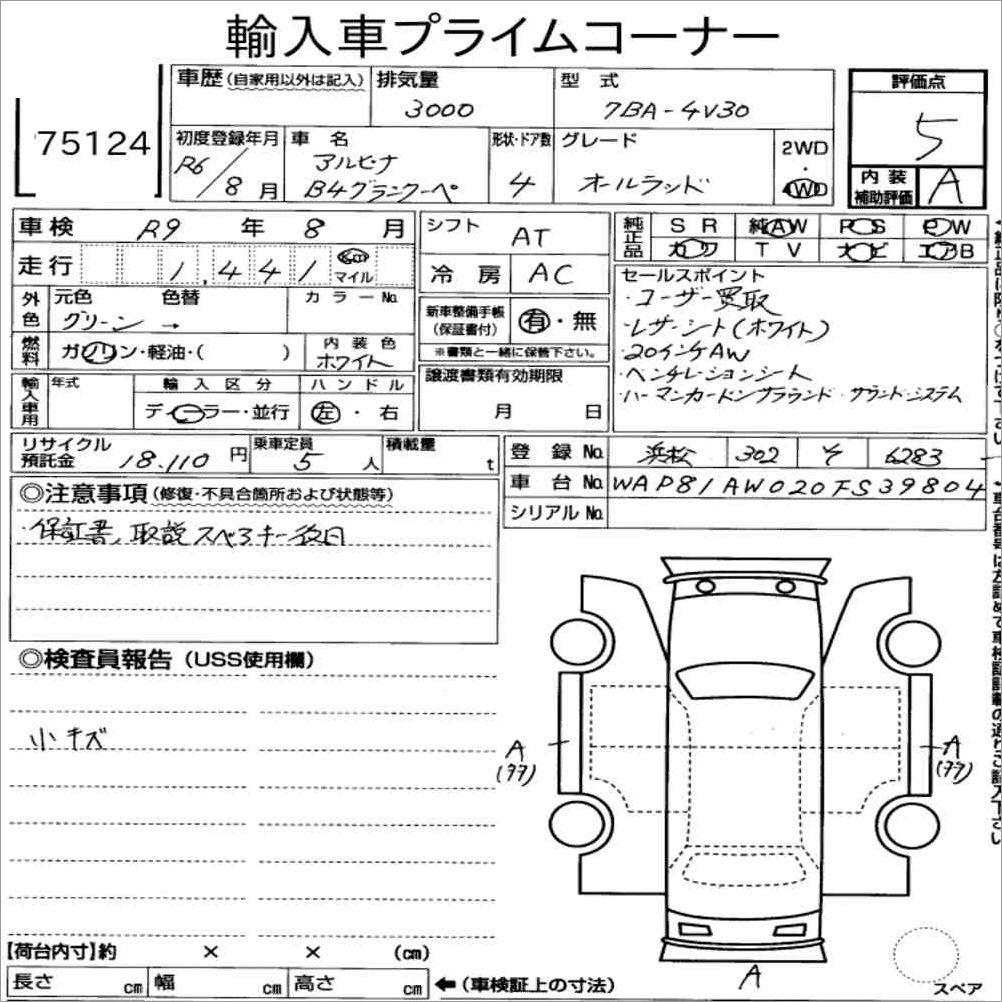 輸入車プライムコーナー
75124
車歴(自家用以外は記入) 排気量 3000 型式 7BA-4V30
評価点 5
初度登録年月 R6/8月 車名 アルピナ B4グランクーペ 形状・ドア数 4 グレード オールラッド 2WD・4WD
内装補助評価 A
車検 R9年8月 シフト AT 純正品 SR 純AW PS PW
カワ TV ナビ エアB
走行 1,441 km マイル 冷房 AC
外色 元色 グリーン → 色替 カラーNo.
新車整備手帳(保証書付) 有・無
※書類と一緒に保管下さい。
燃料 ガソリン・軽油・( ) 内装色 ホワイト
譲渡書類有効期限 月 日
輸入車用 年式 輸入区分 ディーラー・並行 ハンドル 左・右
セールスポイント
・ユーザー買取
・レザーシート(ホワイト)
・20インチAW
・ベンチレーションシート
・ハーマンカードンサラウンド・サウンド・システム
リサイクル預託金 18,110円 乗車定員 5人 積載量 t
登録No. 浜松 302 そ 6283
車台No. WAP81AW020FS39804
シリアルNo.
◎注意事項(修復・不具合箇所および状態等)
・保証書、取説スペアキー後日
◎検査員報告(USS使用欄)
小キズ
A
(タテ)
A
(タテ)
A
スペア
【荷台内寸】約 × × (cm)
長さ cm 幅 cm 高さ cm ←(車検証上の寸法)